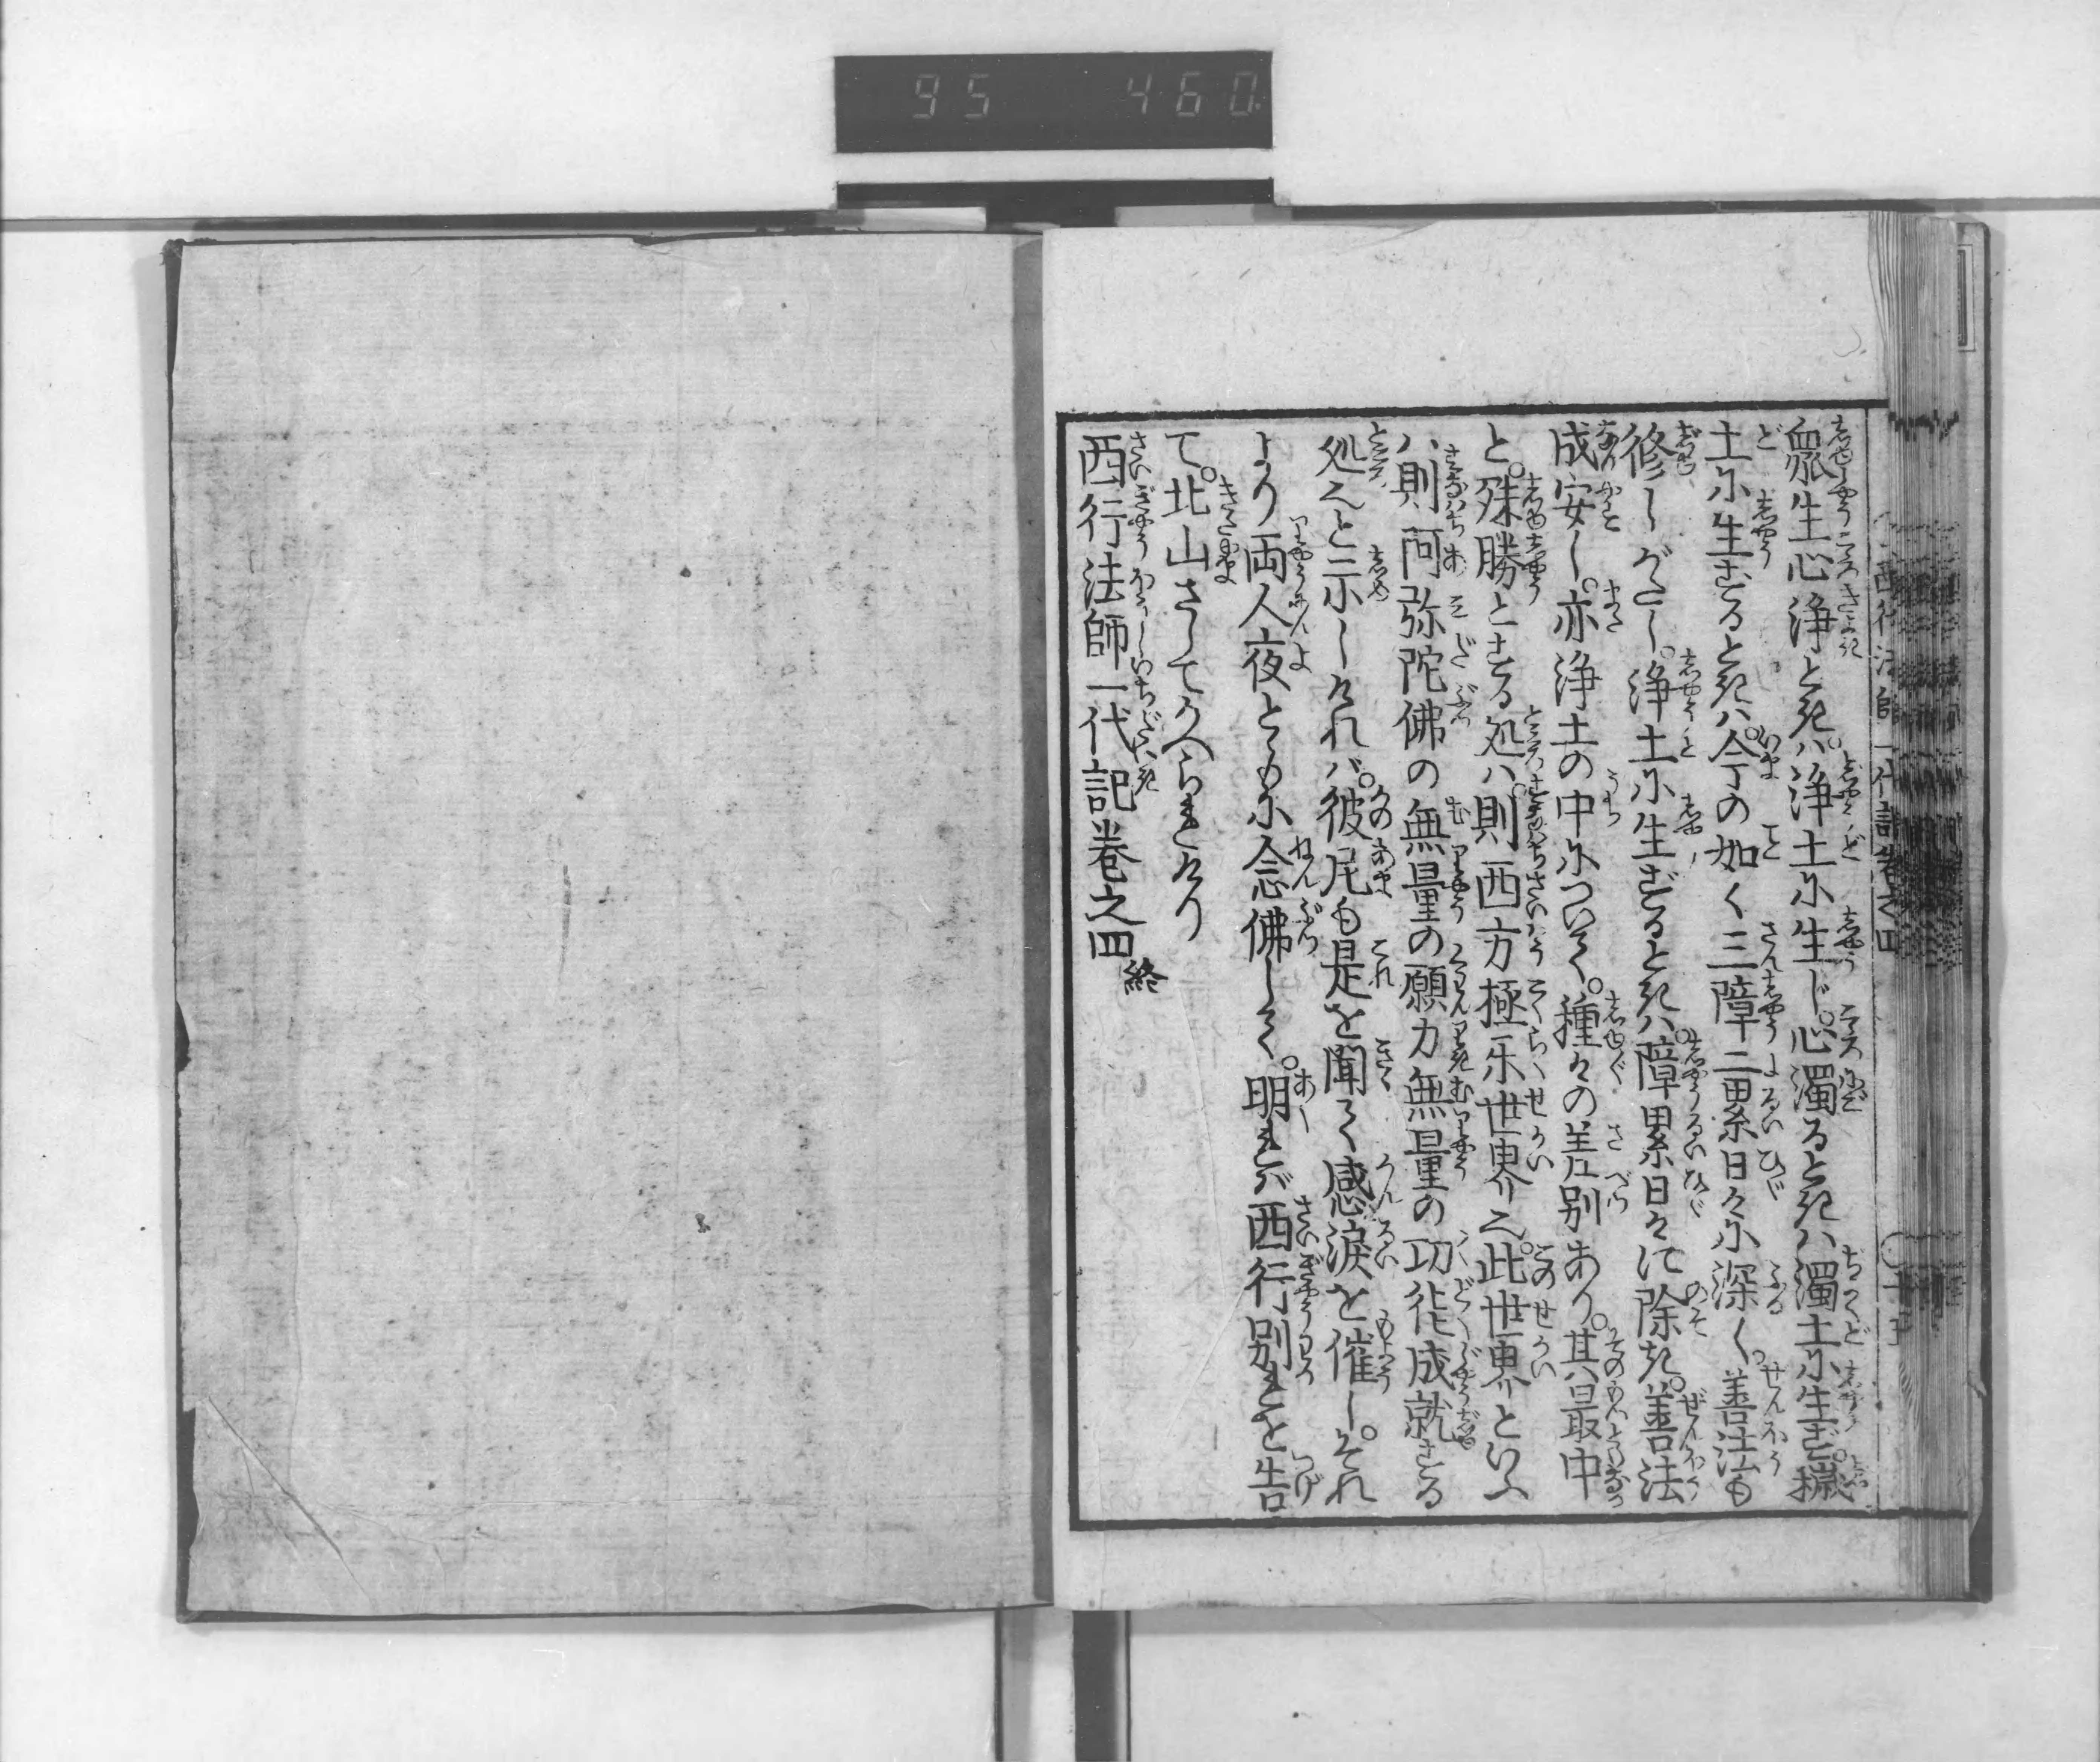 95 460
西行法師一代記巻之四
衆生心浄ときハ。浄土に生じ。心濁るときハ濁土に生ず。穢
土に生ずるときハ。今の如く三障二累日々に深く。善法も
修しがたし。浄土に生ずるときハ。障累日々に除き。善法
成安し。亦浄土の中について。種々の差別あり。其最中
と。殊勝とする処ハ。則西方極楽世界也。此世界といふ
ハ則阿弥陀佛の無量の願力無量の功徳成就する
処也と示しけれバ。彼尼も是を聞て感涙を催し。それ
より両人夜ともに念佛して。明れバ西行別れを告
て。北山さしてかへられけり
西行法師一代記巻之四終